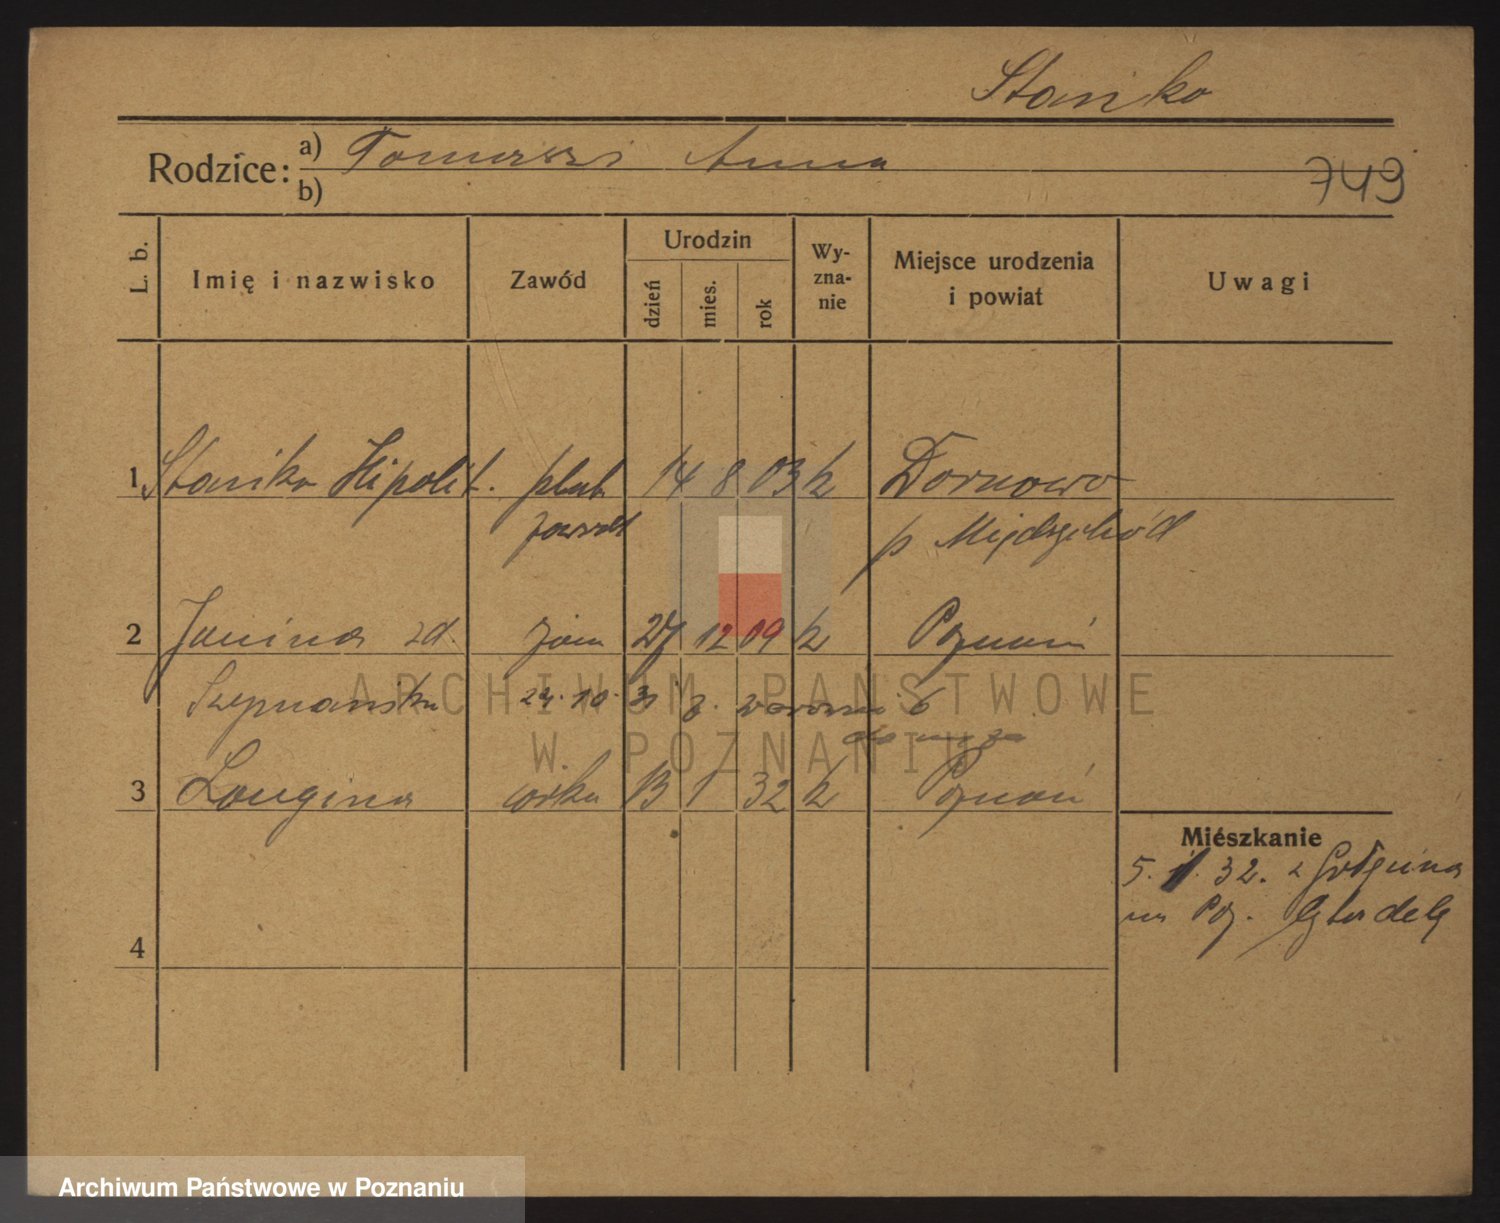 Staniko
Rodzice: a) Tomasz i Anna
b)
749
L. b.
Imię i nazwisko
Zawód
Urodzin
dzień
mies.
rok
Wy-
zna-
nie
Miejsce urodzenia
i powiat
Uwagi
1 Staniko Hipolit. plut 14 8 03 k Dornowo
zawod p Międzychód
2 Janina zd. żona 27 12 09 k Poznań
Szymańska 24.10. 31
3 Longina córka 13 1 32 k Poznań
Miészkanie
5. 1. 32. z Golęcina
na Poz. Cytadelę
4
ARCHIWUM PAŃSTWOWE
W POZNANIU
Archiwum Państwowe w Poznaniu